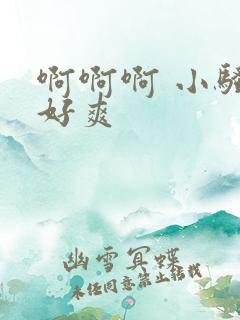 啊啊啊 小骚
好爽
幽雪冥蝶
未经同意禁止转载